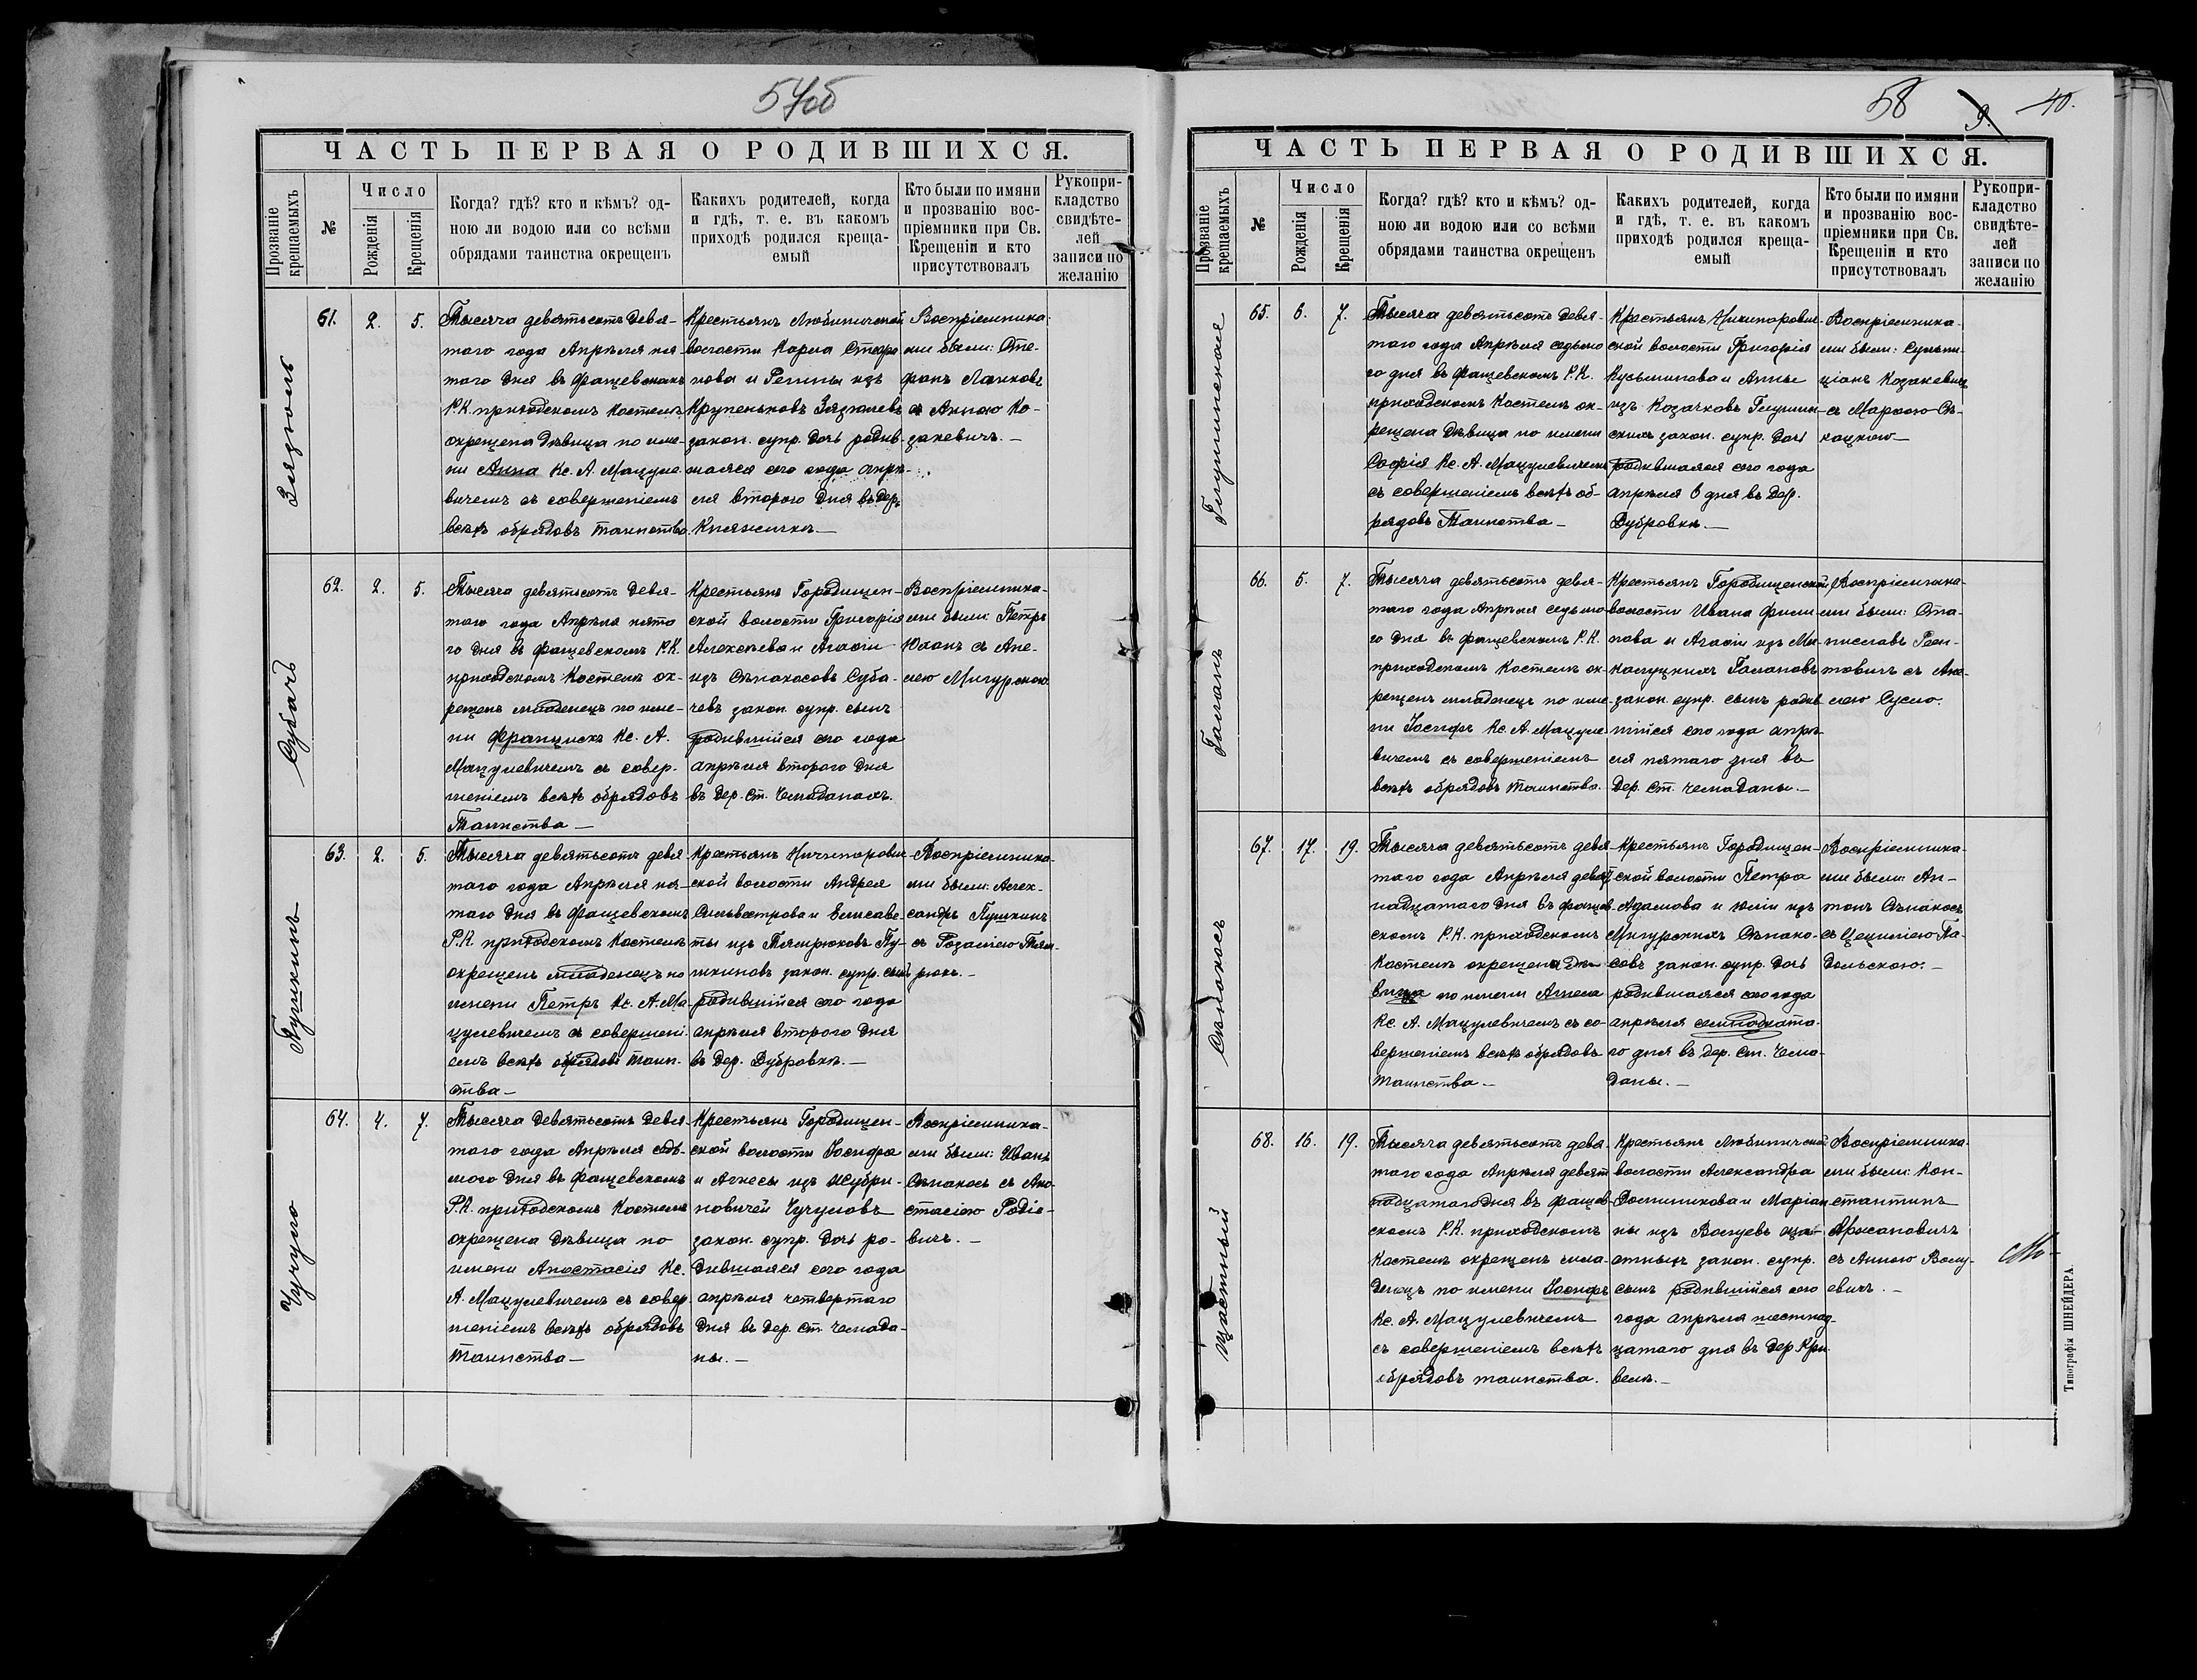 57об
ЧАСТЬ ПЕРВАЯ О РОДИВШИХСЯ.
Прозваніе крещаемыхъ
№
Число
Рожденія
Крещенія
Когда? гдѣ? кто и кѣмъ? од-
ною ли водою или со всѣми
обрядами таинства окрещенъ
Какихъ родителей, когда
и гдѣ, т. е. въ какомъ
приходѣ родился креща-
емый
Кто были по имяни
и прозванію вос-
пріемники при Св.
Крещеніи и кто
присутствовалъ
Рукопри-
кладство
свидѣте-
лей
записи по
желанію
Зязюль
61.
2.
5.
Тысяча девятьсотъ девя-
того года Апрѣля пя-
таго дня въ Фащевскомъ
Р.К. приходскомъ костелѣ
окрещена дѣвица по име-
ни Анна Кс. А. Мацуле-
вичемъ съ совершеніемъ
всѣхъ обрядовъ таинства.
Крестьянъ Любиничской
волости Карла Стефа
нова и Регины изъ
Крупеньковъ Зязюлевъ
закон. супр. дочь родив-
шаяся сего года апрѣ-
ля второго дня въ дер.
Княжичкѣ
Воспріемника-
ми были: Сте-
фанъ Лапковъ
съ Анною Ко-
закевичъ.
Субачъ
62.
2.
5.
Тысяча девятьсотъ девя-
того года Апрѣля пято
го дня въ Фащевскомъ Р.К.
приходскомъ костелѣ ок-
рещенъ младенецъ по име-
ни Францискъ Кс. А.
Мацулевичемъ съ совер-
шеніемъ всѣхъ обрядовъ
Таинства
Крестьянъ Городищен-
ской волости Григорія
Алексѣева и Агафіи
изъ Сѣнокосовъ Суба-
чевъ закон. супр. сынъ
родившійся сего года
апрѣля второго дня
въ дер. Ст. Чемоданахъ.
Воспріемника-
ми были: Петръ
Юханъ съ Ане-
лею Мигурскою.
Пушкинъ
63.
2.
5.
Тысяча девятьсотъ девя
таго года Апрѣля пя-
таго дня въ Фащевскомъ
Р.К. приходскомъ костелѣ
окрещенъ младенецъ по
имени Петръ Кс. А. Ма-
цулевичемъ съ совершені-
емъ всѣхъ обрядовъ таин-
ства
Крестьянъ Ничипорович-
ской волости Андрея
Сильвестрова и Елисаве-
ты изъ Темрюковъ Пу-
шкиновъ закон. супр. сынъ
родившійся сего года
апрѣля второго дня
въ дер. Дубровкѣ.
Воспріемника-
ми были: Алек-
сандръ Пушкинъ
съ Розаліею Тем-
рюкъ.
Чучуло
64.
4.
7.
Тысяча девятьсотъ девя-
того года Апрѣля седь-
мого дня въ Фащевскомъ
Р.К. приходскомъ костелѣ
окрещена дѣвица по
имени Анастасія Кс.
А. Мацулевичемъ съ совер-
шеніемъ всѣхъ обрядовъ
Таинства
Крестьянъ Городищен-
ской волости Іосифа
и Агнесы изъ Жубри-
новичей Чучуловъ
закон. супр. дочь ро-
дившаяся сего года
апрѣля четвертаго
дня въ дер. Ст. Чемода-
ны.
Воспріемника-
ми были: Иванъ
Сѣнокосъ съ Ана-
стасіею Радіо-
вичъ.
58
9.
40.
ЧАСТЬ ПЕРВАЯ О РОДИВШИХСЯ.
Прозваніе крещаемыхъ
№
Число
Рожденія
Крещенія
Когда? гдѣ? кто и кѣмъ? од-
ною ли водою или со всѣми
обрядами таинства окрещенъ
Какихъ родителей, когда
и гдѣ, т. е. въ какомъ
приходѣ родился креща-
емый
Кто были по имяни
и прозванію вос-
пріемники при Св.
Крещеніи и кто
присутствовалъ
Рукопри-
кладство
свидѣте-
лей
записи по
желанію
Глушинская
65.
6.
7.
Тысяча девятьсотъ девя-
того года Апрѣля седьмо
го дня въ Фащевскомъ Р.К.
приходскомъ костелѣ ок-
рещена дѣвица по имени
Софія Кс. А. Мацулевичемъ
съ совершеніемъ всѣхъ об-
рядовъ Таинства
Крестьянъ Ничипорович-
ской волости Григорія
Кузьминова и Анны
изъ Козачковъ Глушин-
скихъ закон. супр. дочь
родившаяся сего года
апрѣля 6 дня въ дер.
Дубровкѣ.
Воспріемника-
ми были: Сульпи-
ціанъ Козакевичъ
съ Маріею Сѣ-
кацкою
Галанъ
66.
5.
7.
Тысяча девятьсотъ девя-
таго года Апрѣля седьмо-
го дня въ Фащевскомъ Р.К.
приходскомъ костелѣ ок-
рещенъ младенецъ по име-
ни Іосифъ Кс. А. Мацуле-
вичемъ съ совершеніемъ
всѣхъ обрядовъ таинства.
Крестьянъ Городищенской
волости Ивана Фили
пова и Агафіи изъ Ми-
калуцкихъ Галановъ
закон. супр. сынъ родив
шійся сего года апрѣ
ля пятаго дня въ
дер. Ст. Чемоданы.
Воспріемника-
ми были: Ста-
ниславъ Рен-
товичъ съ Ане-
лею Сусло.
Сѣнокосъ
67.
17.
19.
Тысяча девятьсотъ девя-
таго года Апрѣля девят-
надцатаго дня въ Фащев-
скомъ Р.К. приходскомъ
костелѣ окрещена дѣ-
вица по имени Агнеса
Кс. А. Мацулевичемъ съ со-
вершеніемъ всѣхъ обрядовъ
таинства
Крестьянъ Городищен-
ской волости Петра
Адамова и Юліи изъ
Мигурскихъ Сѣноко-
совъ закон. супр. дочь
родившаяся сего года
апрѣля семнадцато-
го дня въ дер. Ст. Чемо-
даны.
Воспріемника-
ми были: Ан-
тонъ Сѣнокосъ
съ Цециліею По-
дольскою.
Щастный
68.
16.
19.
Тысяча девятьсотъ девя-
таго года Апрѣля девят
надцатаго дня въ Фащев-
скомъ Р.К. приходскомъ
костелѣ окрещенъ мла-
денецъ по имени Іосифъ
Кс. А. Мацулевичемъ
съ совершеніемъ всѣхъ
обрядовъ таинства.
Крестьянъ Любиничской
волости Александра
и Маріан
ны изъ
закон. супр.
сынъ родившійся сего
года апрѣля шестнад-
цатаго дня въ дер. Кри-
велѣ.
Воспріемника-
ми были: Кон-
стантинъ
съ Анною
евичъ.
Типографія ШНЕЙДЕРА.